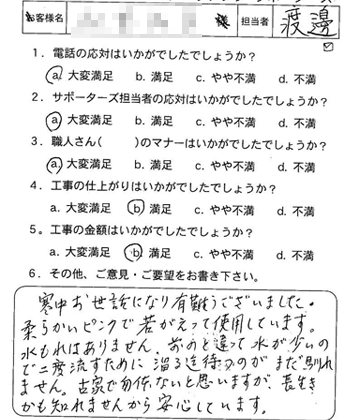 お客様名 様 担当者 渡邊
1．電話の応対はいかがでしたでしょうか？
a. 大変満足 b. 満足 c. やや不満 d. 不満
2．サポーターズ担当者の応対はいかがでしたでしょうか？
a. 大変満足 b. 満足 c. やや不満 d. 不満
3．職人さん(　　)のマナーはいかがでしたでしょうか？
a. 大変満足 b. 満足 c. やや不満 d. 不満
4．工事の仕上がりはいかがでしたでしょうか？
a. 大変満足 b. 満足 c. やや不満 d. 不満
5。工事の金額はいかがでしたでしょうか？
a. 大変満足 b. 満足 c. やや不満 d. 不満
6．その他、ご意見・ご要望をお書き下さい。
寒中お世話になり有難うございました。
柔らかいピンクで若がえって使用しています。
水もれはありません。前のと違って水が少いの
で二度流すために溜る迄待つのがまだ馴れ
ません。古家で勿体ないと思いますが、長生き
かも知れませんから安心しています。